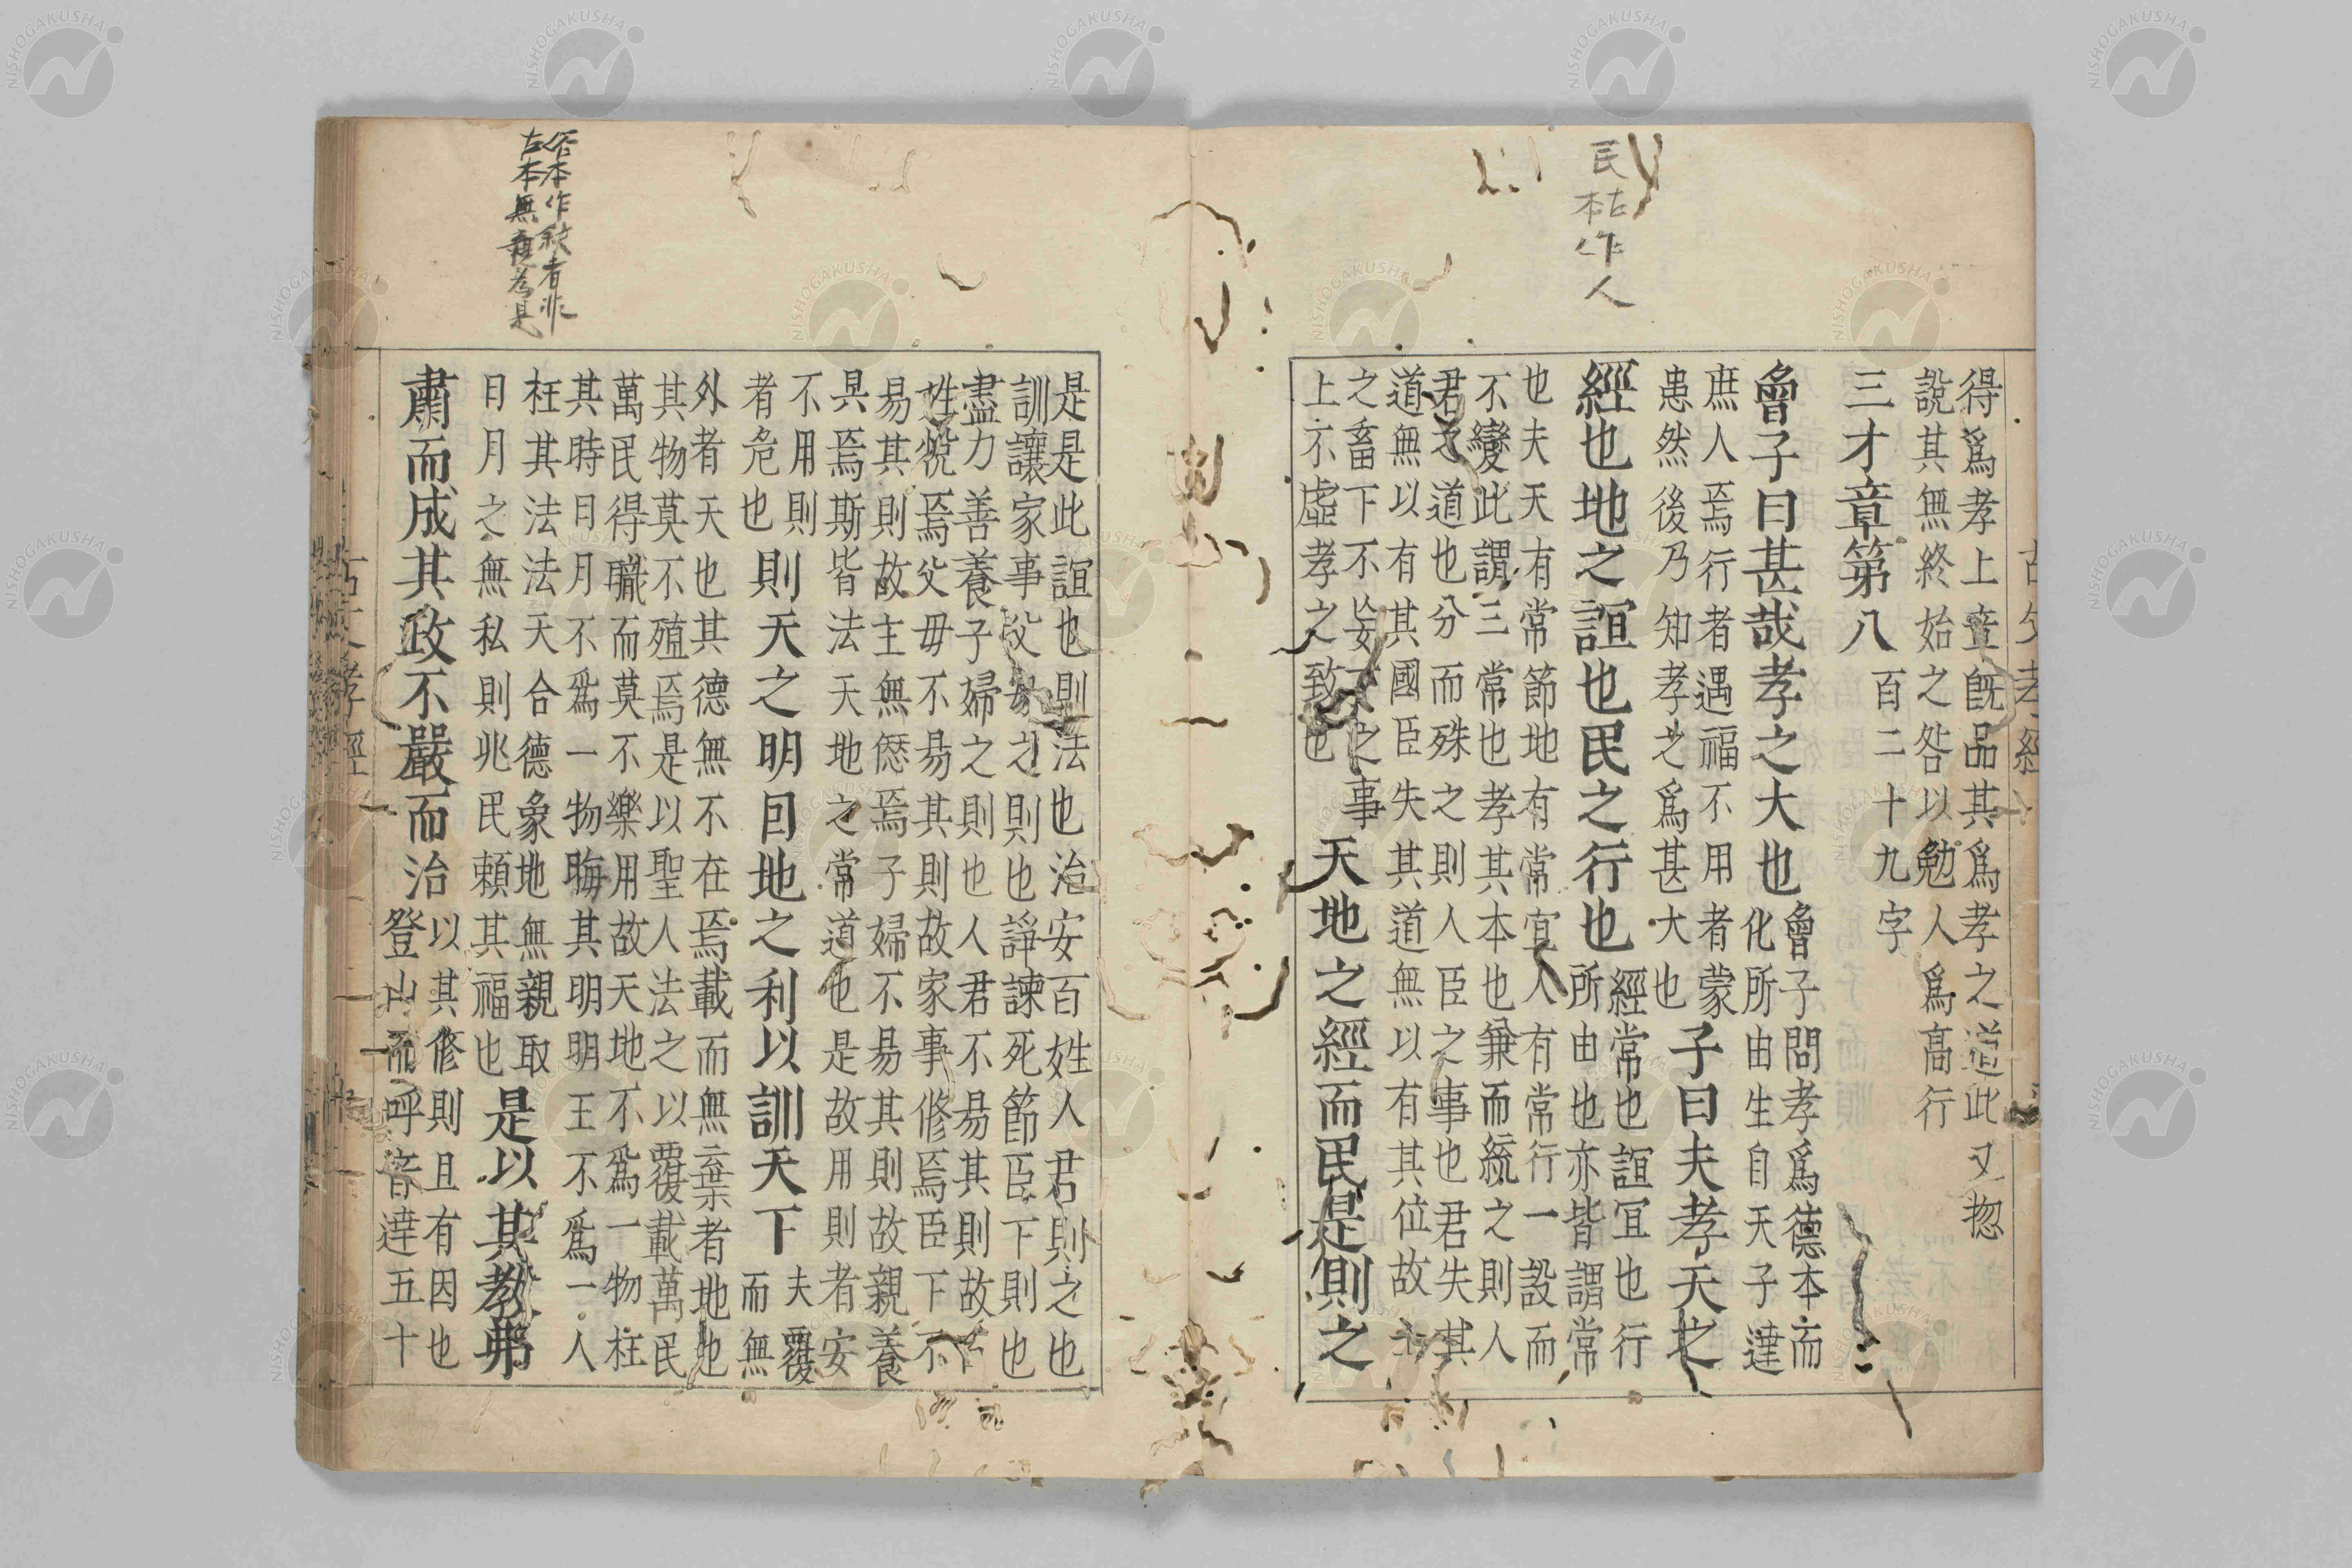 民古本作人
得爲孝上章旣品其爲孝之道此又惣
說其無終始之咎以勉人爲高行
三才章第八 百二十九字
曾子曰甚哉孝之大也 曾子問孝爲德本而
化所由生自天子達
庶人焉行者遇福不用者蒙
患然後乃知孝之爲甚大也 子曰夫孝天之
經也地之誼也民之行也 經常也誼冝也行
所由也亦皆謂常
也夫天有常節地有常宜人有常行一設而
不變此謂三常也孝其本也兼而統之則人
君之道也分而殊之則人臣之事也君失其
道無以有其國臣失其道無以有其位故上
之畜下不妄下之事
上不虛孝之致也 天地之經而民是則之
是是此誼也則法也治安百姓人君則之也
訓讓家事父母之則也諍諫死節臣下則也
盡力善養子婦之則也人君不易其則故百
姓悅焉父毋不易其則故家事修焉臣下不
易其則故主無僽焉子婦不易其則故親養
具焉斯皆法天地之常道也是故用則者安
不用則
者危也 則天之明因地之利以訓天下 夫覆
而無
外者天也其德無不在焉載而無棄者地也
其物莫不殖焉是以聖人法之以覆載萬民
萬民得職而莫不樂用故天地不爲一物枉
其時日月不爲一物晦其明明王不爲一人
枉其法法天合德象地無親取
日月之無私則兆民賴其福也 是以其教弗
肅而成其政不嚴而治 以其修則且有因也
登山而呼音達五十